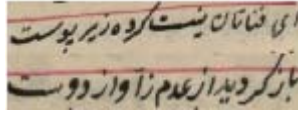 ای فناتان نیست کرده زیر پوست
باز کردید از عدم ز آواز دوست